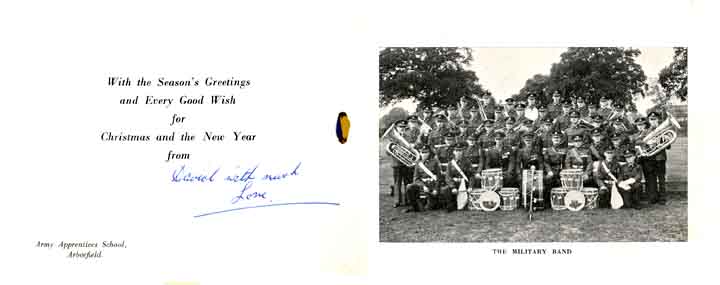 With the Season's Greetings
and Every Good Wish
for
Christmas and the New Year
from
David with much
Love.
Army Apprentices School,
Arborfield
THE MILITARY BAND